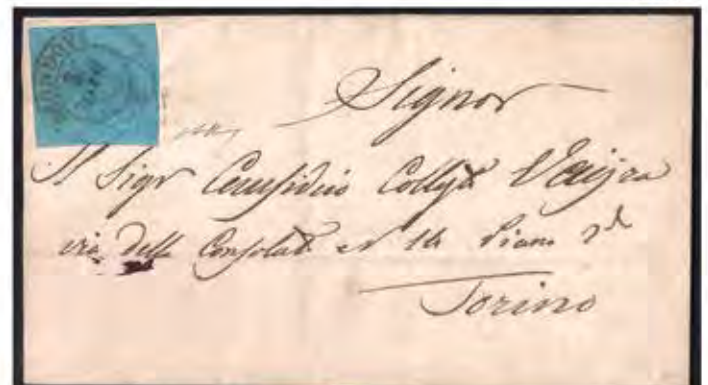 Signor
Il Sigr Causidico Collegto
via della Consolata N 14 Piano 2do
Torino